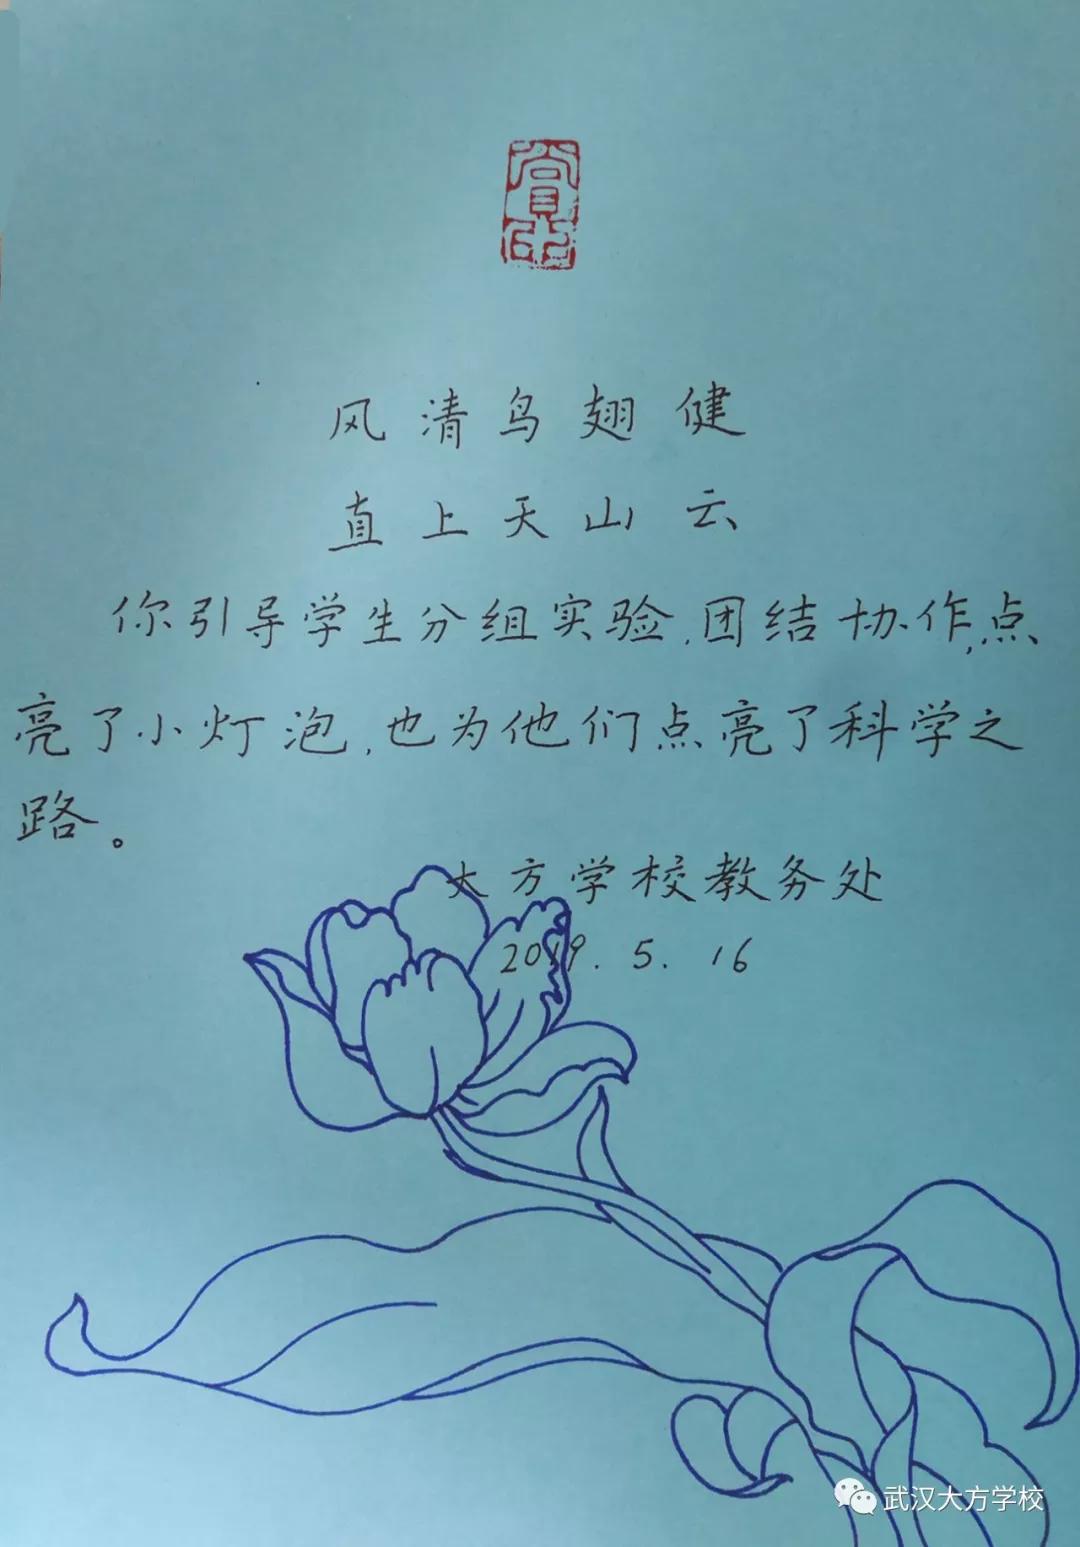 风清鸟翅健
直上天山云
你引导学生分组实验,团结协作,点
亮了小灯泡,也为他们点亮了科学之
路。
大方学校教务处
2019.5.16
武汉大方学校